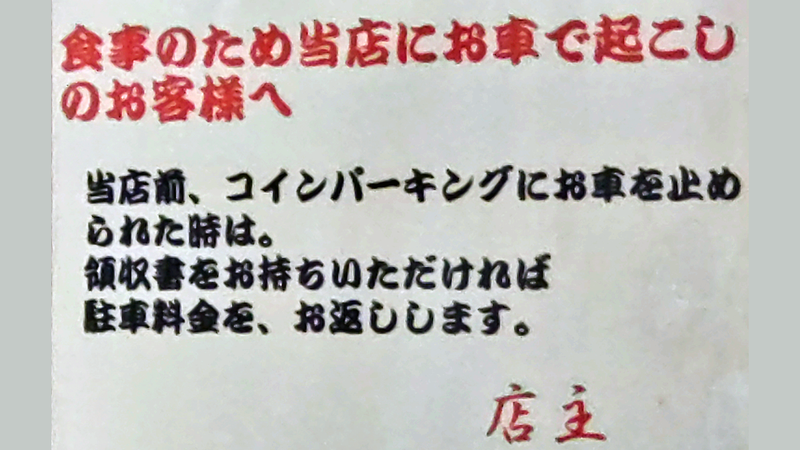 食事のため当店にお車で起こし
のお客様へ
当店前、コインパーキングにお車を止め
られた時は。
領収書をお持ちいただければ
駐車料金を、お返しします。
店主